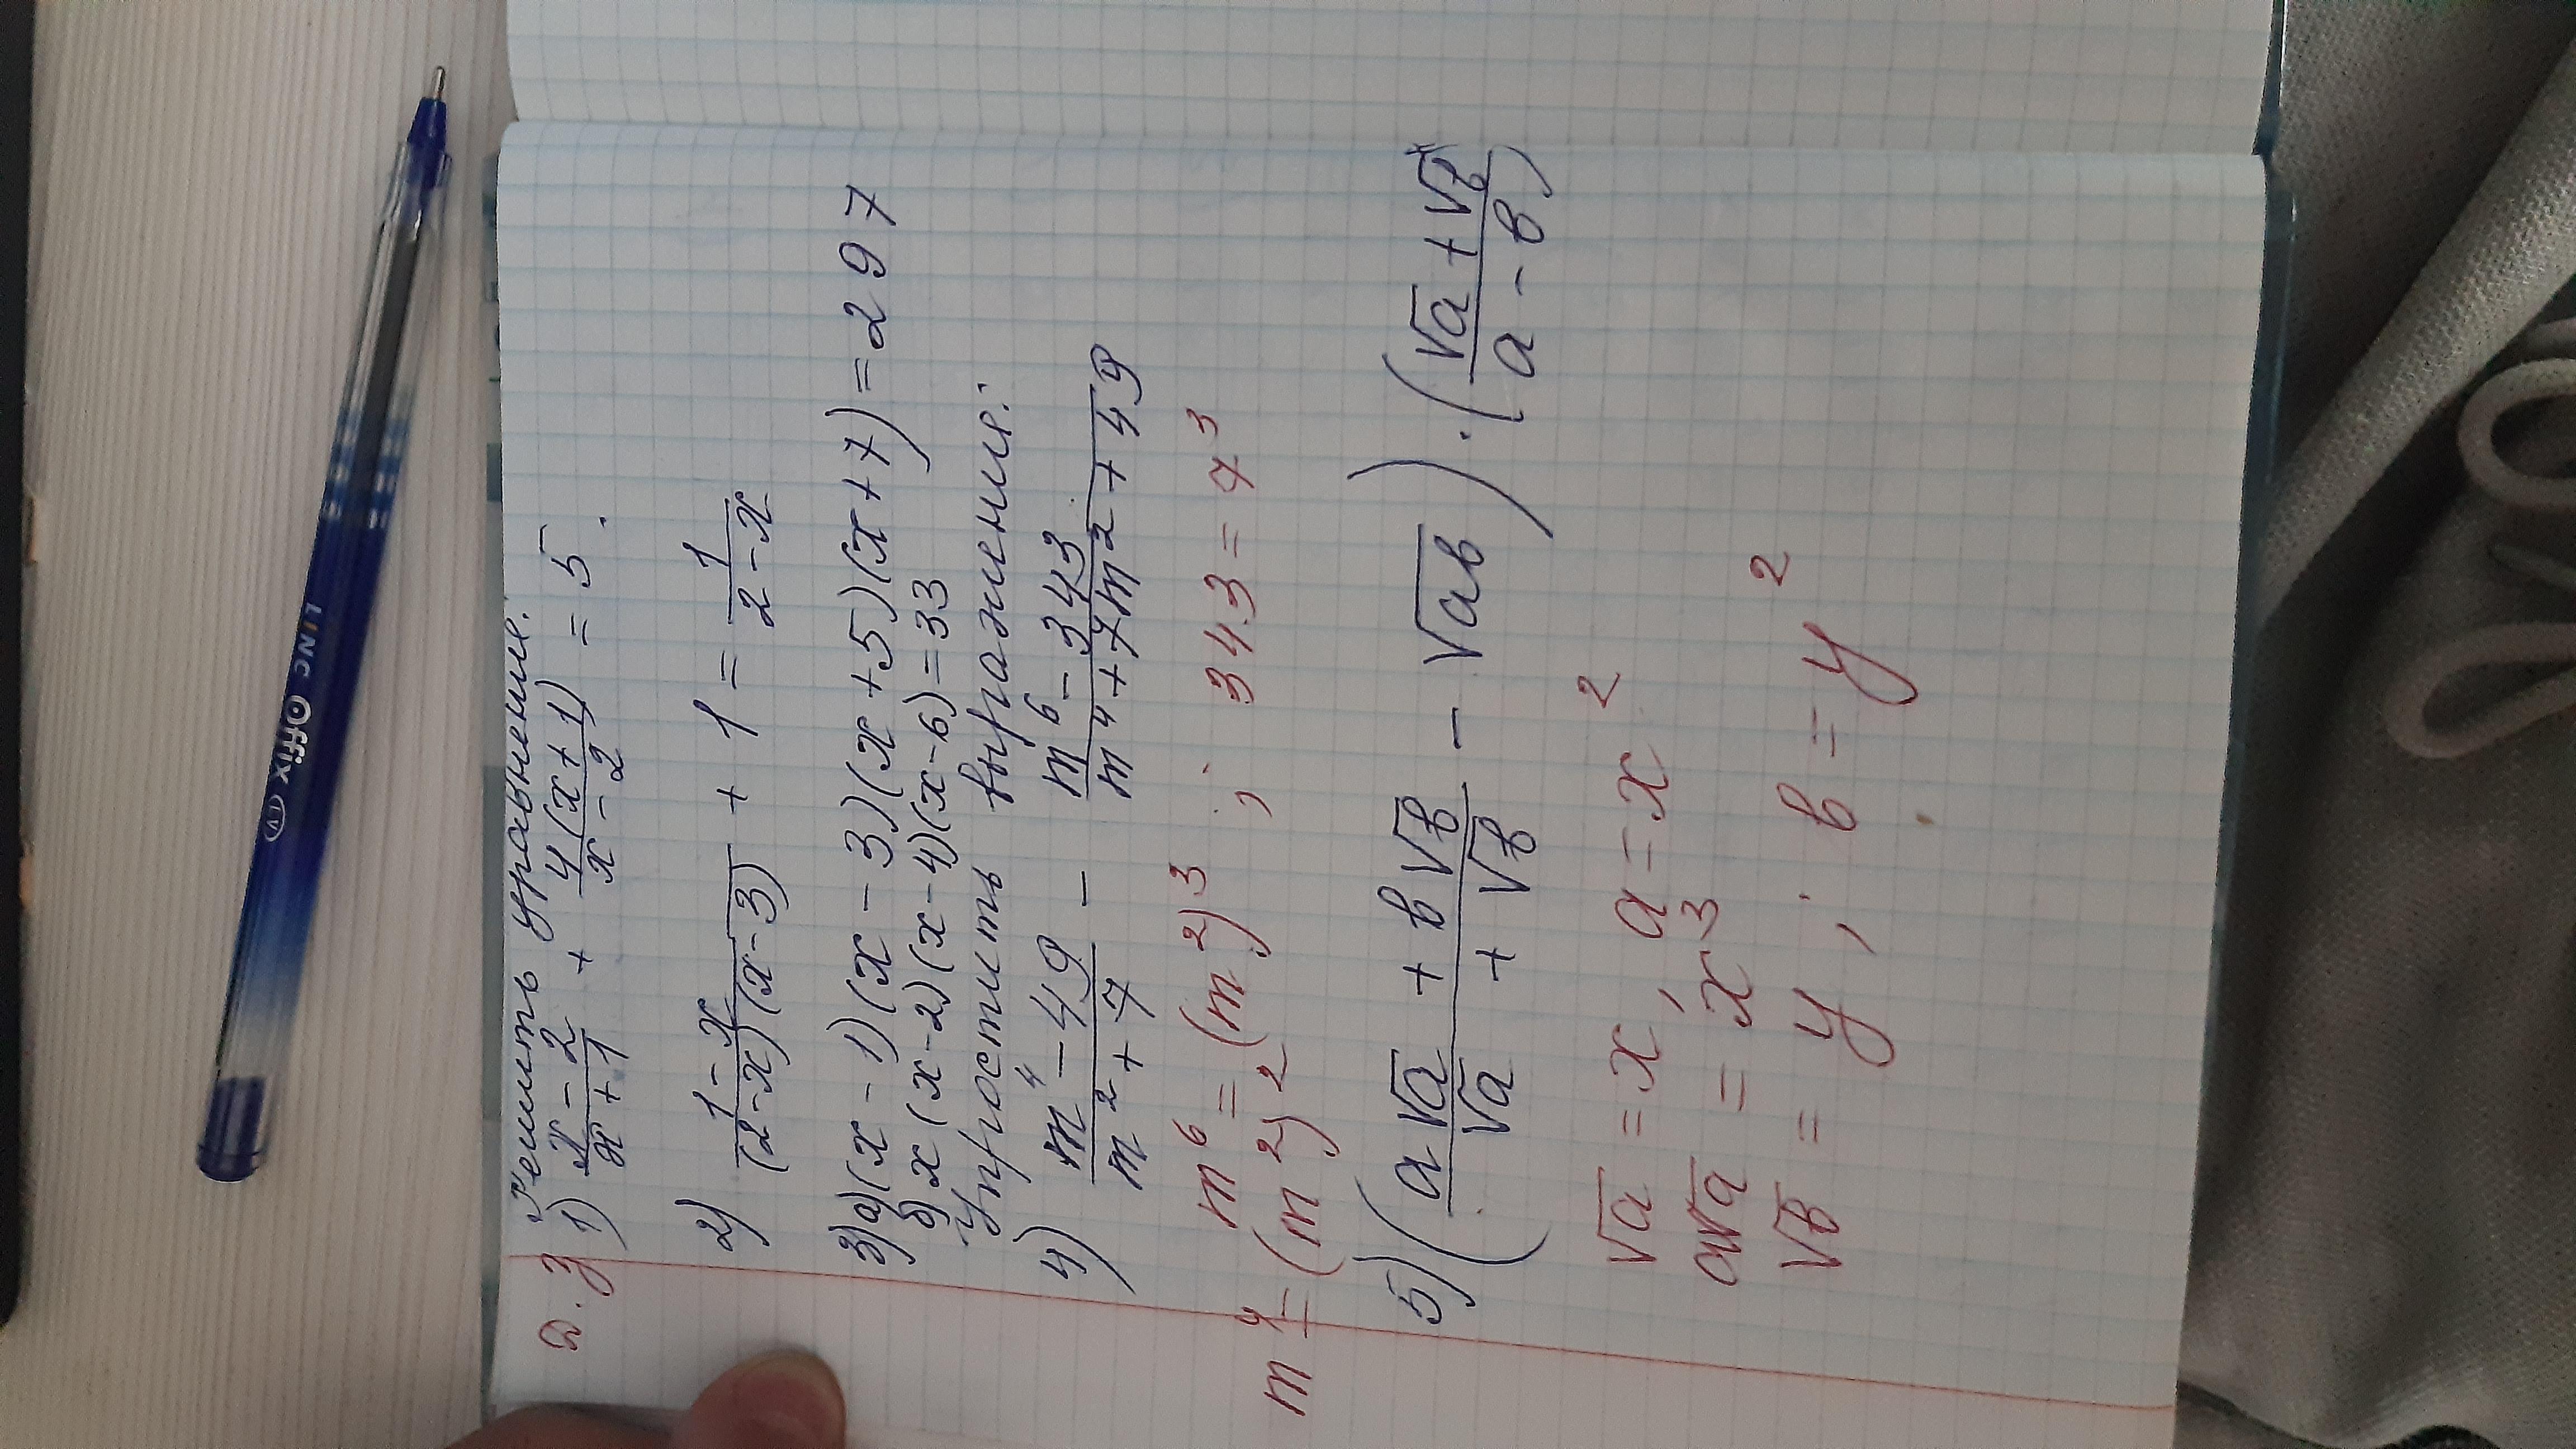 Д.З Решить уравнения:
1) \frac{x-2}{x+1} + \frac{4(x+1)}{x-2} = 5.
2) \frac{1-x}{(2-x)(x-3)} + 1 = \frac{1}{2-x}
3) а) (x-1)(x-3)(x+5)(x+7)=297
б) x(x-2)(x-4)(x-6)=33
Упростить выражения:
4) \frac{m^4-49}{m^2+7} - \frac{m^6-343}{m^4+7m^2+49}
m^6=(m^2)^3; 343=7^3
m^4=(m^2)^2
5) (\frac{a\sqrt{a}+b\sqrt{b}}{\sqrt{a}+\sqrt{b}} - \sqrt{ab}) \cdot (\frac{\sqrt{a}+\sqrt{b}}{a-b})
\sqrt{a}=x, a=x^2
a\sqrt{a}=x^3
\sqrt{b}=y; b=y^2
LINC Offix